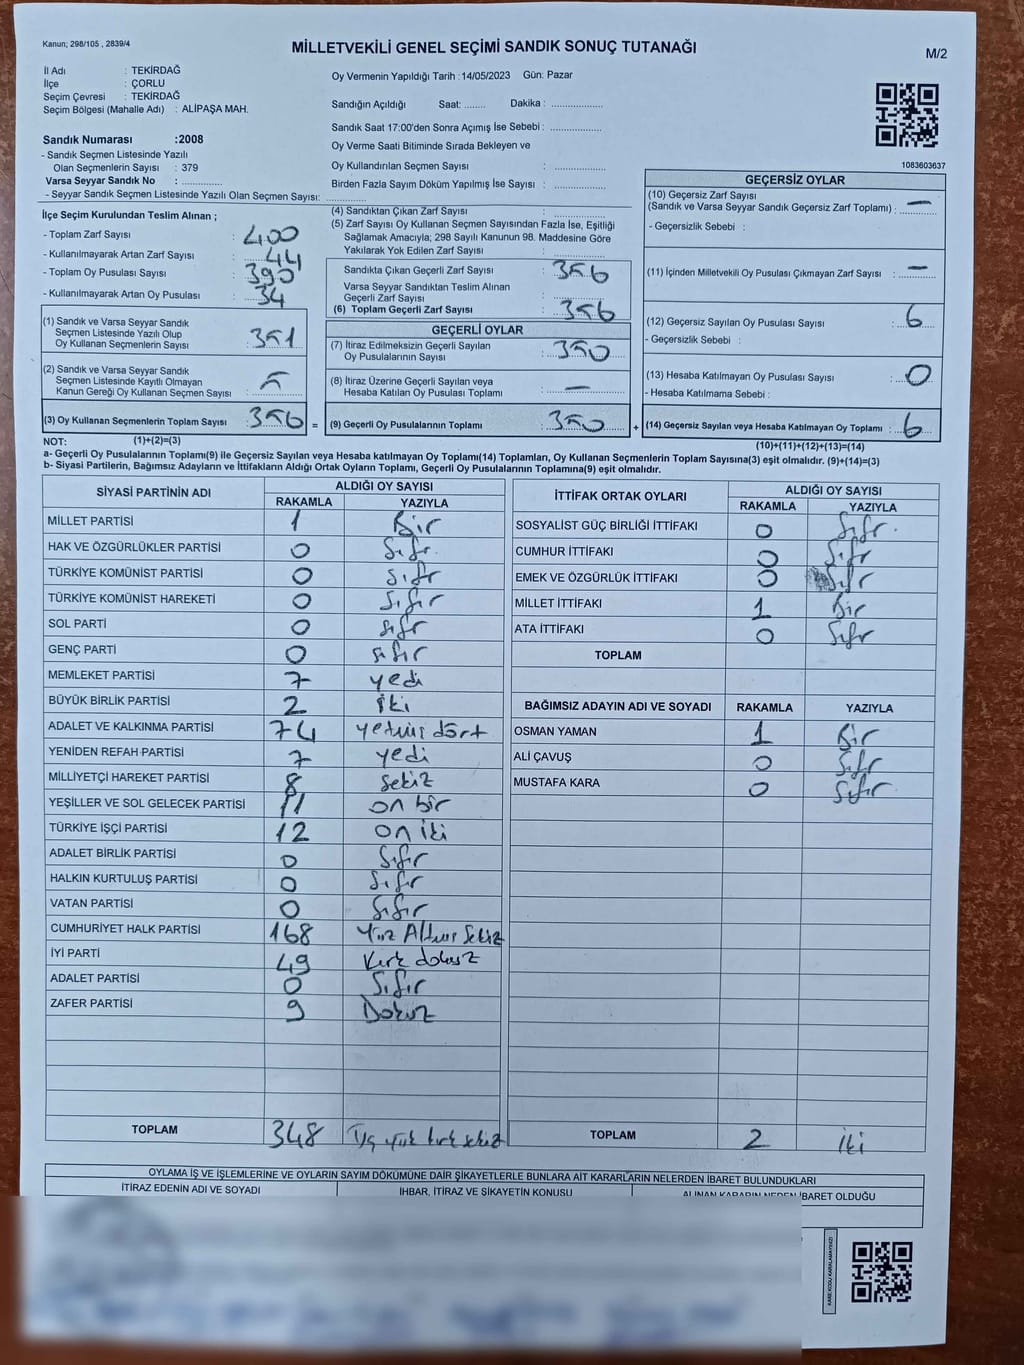 Kanun; 298/105 , 2839/4
MİLLETVEKİLİ GENEL SEÇİMİ SANDIK SONUÇ TUTANAĞI
M/2
İl Adı : TEKİRDAĞ
İlçe : ÇORLU
Seçim Çevresi : TEKİRDAĞ
Seçim Bölgesi (Mahalle Adı) : ALİPAŞA MAH.
Sandık Numarası :2008
- Sandık Seçmen Listesinde Yazılı
Olan Seçmenlerin Sayısı : 379
Varsa Seyyar Sandık No : ..............
- Seyyar Sandık Seçmen Listesinde Yazılı Olan Seçmen Sayısı: ..............
Oy Vermenin Yapıldığı Tarih : 14/05/2023 Gün: Pazar
Sandığın Açıldığı Saat: ........ Dakika : ..................
Sandık Saat 17:00'den Sonra Açımış İse Sebebi : ..................
Oy Verme Saati Bitiminde Sırada Bekleyen ve
Oy Kullandırılan Seçmen Sayısı : ..................
Birden Fazla Sayım Döküm Yapılmış İse Sayısı : ..................
1083603637
İlçe Seçim Kurulundan Teslim Alınan ;
- Toplam Zarf Sayısı : 400
- Kullanılmayarak Artan Zarf Sayısı : 44
- Toplam Oy Pusulası Sayısı : 390
- Kullanılmayarak Artan Oy Pusulası : 34
(1) Sandık ve Varsa Seyyar Sandık
Seçmen Listesinde Yazılı Olup
Oy Kullanan Seçmenlerin Sayısı : 351
(2) Sandık ve Varsa Seyyar Sandık
Seçmen Listesinde Kayıtlı Olmayan
Kanun Gereği Oy Kullanan Seçmen Sayısı : 5
(3) Oy Kullanan Seçmenlerin Toplam Sayısı : 356 =
(4) Sandıktan Çıkan Zarf Sayısı : ..................
(5) Zarf Sayısı Oy Kullanan Seçmen Sayısından Fazla İse, Eşitliği
Sağlamak Amacıyla; 298 Sayılı Kanunun 98. Maddesine Göre
Yakılarak Yok Edilen Zarf Sayısı : ..................
Sandıkta Çıkan Geçerli Zarf Sayısı : 356
Varsa Seyyar Sandıktan Teslim Alınan
Geçerli Zarf Sayısı : ..................
(6) Toplam Geçerli Zarf Sayısı : 356
GEÇERLİ OYLAR
(7) İtiraz Edilmeksizin Geçerli Sayılan
Oy Pusulalarının Sayısı : 350
(8) İtiraz Üzerine Geçerli Sayılan veya
Hesaba Katılan Oy Pusulası Toplamı : —
(9) Geçerli Oy Pusulalarının Toplamı : 350 +
GEÇERSİZ OYLAR
(10) Geçersiz Zarf Sayısı
(Sandık ve Varsa Seyyar Sandık Geçersiz Zarf Toplamı) : —
- Geçersizlik Sebebi :
(11) İçinden Milletvekili Oy Pusulası Çıkmayan Zarf Sayısı : —
(12) Geçersiz Sayılan Oy Pusulası Sayısı : 6
- Geçersizlik Sebebi :
(13) Hesaba Katılmayan Oy Pusulası Sayısı : 0
- Hesaba Katılmama Sebebi :
(14) Geçersiz Sayılan veya Hesaba Katılmayan Oy Toplamı : 6
NOT: (1)+(2)=(3) (10)+(11)+(12)+(13)=(14)
a- Geçerli Oy Pusulalarının Toplamı(9) ile Geçersiz Sayılan veya Hesaba katılmayan Oy Toplamı(14) Toplamları, Oy Kullanan Seçmenlerin Toplam Sayısına(3) eşit olmalıdır. (9)+(14)=(3)
b- Siyasi Partilerin, Bağımsız Adayların ve İttifakların Aldığı Ortak Oyların Toplamı, Geçerli Oy Pusulalarının Toplamına(9) eşit olmalıdır.
SİYASİ PARTİNİN ADI ALDIĞI OY SAYISI
RAKAMLA YAZIYLA
MİLLET PARTİSİ 1 Bir
HAK VE ÖZGÜRLÜKLER PARTİSİ 0 Sıfır
TÜRKİYE KOMÜNİST PARTİSİ 0 Sıfır
TÜRKİYE KOMÜNİST HAREKETİ 0 Sıfır
SOL PARTİ 0 Sıfır
GENÇ PARTİ 0 sıfır
MEMLEKET PARTİSİ 7 yedi
BÜYÜK BİRLİK PARTİSİ 2 iki
ADALET VE KALKINMA PARTİSİ 74 yetmiş dört
YENİDEN REFAH PARTİSİ 7 yedi
MİLLİYETÇİ HAREKET PARTİSİ 8 sekiz
YEŞİLLER VE SOL GELECEK PARTİSİ 11 on bir
TÜRKİYE İŞÇİ PARTİSİ 12 on iki
ADALET BİRLİK PARTİSİ 0 Sıfır
HALKIN KURTULUŞ PARTİSİ 0 Sıfır
VATAN PARTİSİ 0 Sıfır
CUMHURİYET HALK PARTİSİ 168 Yüz Altmış Sekiz
İYİ PARTİ 49 Kırk dokuz
ADALET PARTİSİ 0 Sıfır
ZAFER PARTİSİ 9 Dokuz
TOPLAM 348 Üç yüz kırk sekiz
İTTİFAK ORTAK OYLARI ALDIĞI OY SAYISI
RAKAMLA YAZIYLA
SOSYALİST GÜÇ BİRLİĞİ İTTİFAKI 0 Sıfır.
CUMHUR İTTİFAKI 0 Sıfır
EMEK VE ÖZGÜRLÜK İTTİFAKI 0 Sıfır
MİLLET İTTİFAKI 1 Bir
ATA İTTİFAKI 0 Sıfır
TOPLAM
BAĞIMSIZ ADAYIN ADI VE SOYADI RAKAMLA YAZIYLA
OSMAN YAMAN 1 Bir
ALİ ÇAVUŞ 0 Sıfır
MUSTAFA KARA 0 Sıfır
TOPLAM 2 iki
OYLAMA İŞ VE İŞLEMLERİNE VE OYLARIN SAYIM DÖKÜMÜNE DAİR ŞİKAYETLERLE BUNLARA AİT KARARLARIN NELERDEN İBARET BULUNDUKLARI
İTİRAZ EDENİN ADI VE SOYADI İHBAR, İTİRAZ VE ŞİKAYETİN KONUSU ALINAN KARARIN NEDEN İBARET OLDUĞU